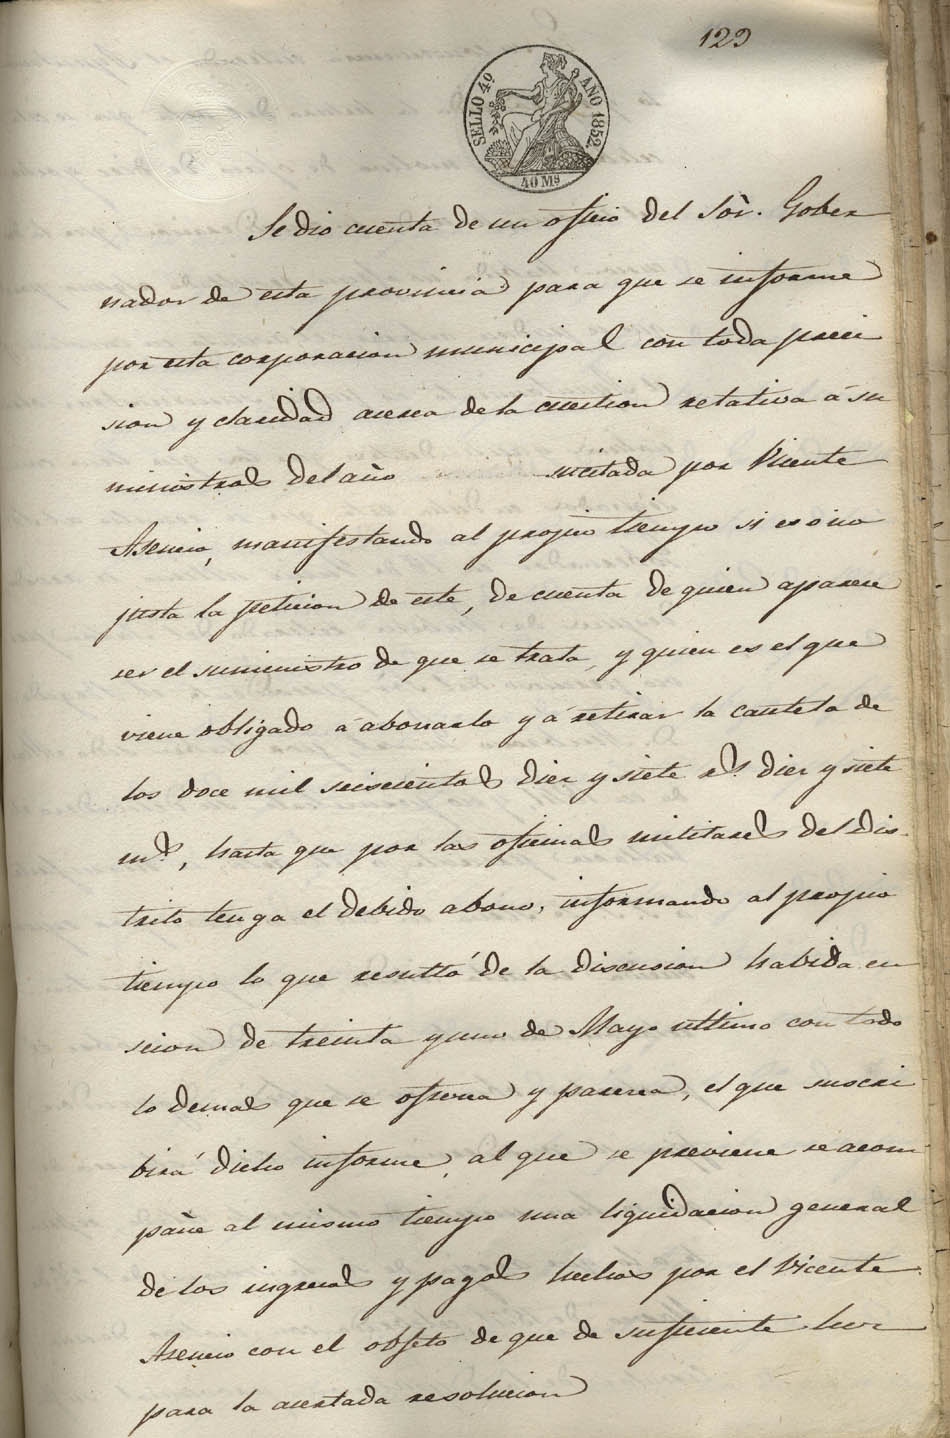 129
SELLO 4º AÑO 1852.
40 Ms
Se dio cuenta de un oficio del Sòr. Gober
nador de esta provincia para que se informe
por esta corporacion municipal con toda preci
sion y claridad acerca de la cuestion relativa á su
ministros del año suscitada por Vicente
Asencio, manifestando al propio tiempo si es ó no
justa la peticion de este, de cuenta de quien aparece
ser el suministro de que se trata, y quien es el que
viene obligado á abonarlo y á retirar la cautela de
los doce mil seiscientos diez y siete rs. diez y siete
ms., hasta que por las oficinas militares del dis-
trito tenga el debido abono, informando al propio
tiempo lo que resultó de la discusion habida en
secion de treinta y uno de Mayo ultimo con todo
lo demas que se ofrezca y parezca, el que suscri
birá dicho informe, al que se previene se acom
pañe al mismo tiempo una liquidacion general
de los ingresos y pagos hechos por el Vicente
Asencio con el objeto de que de suficiente luz
para la acertada resolucion